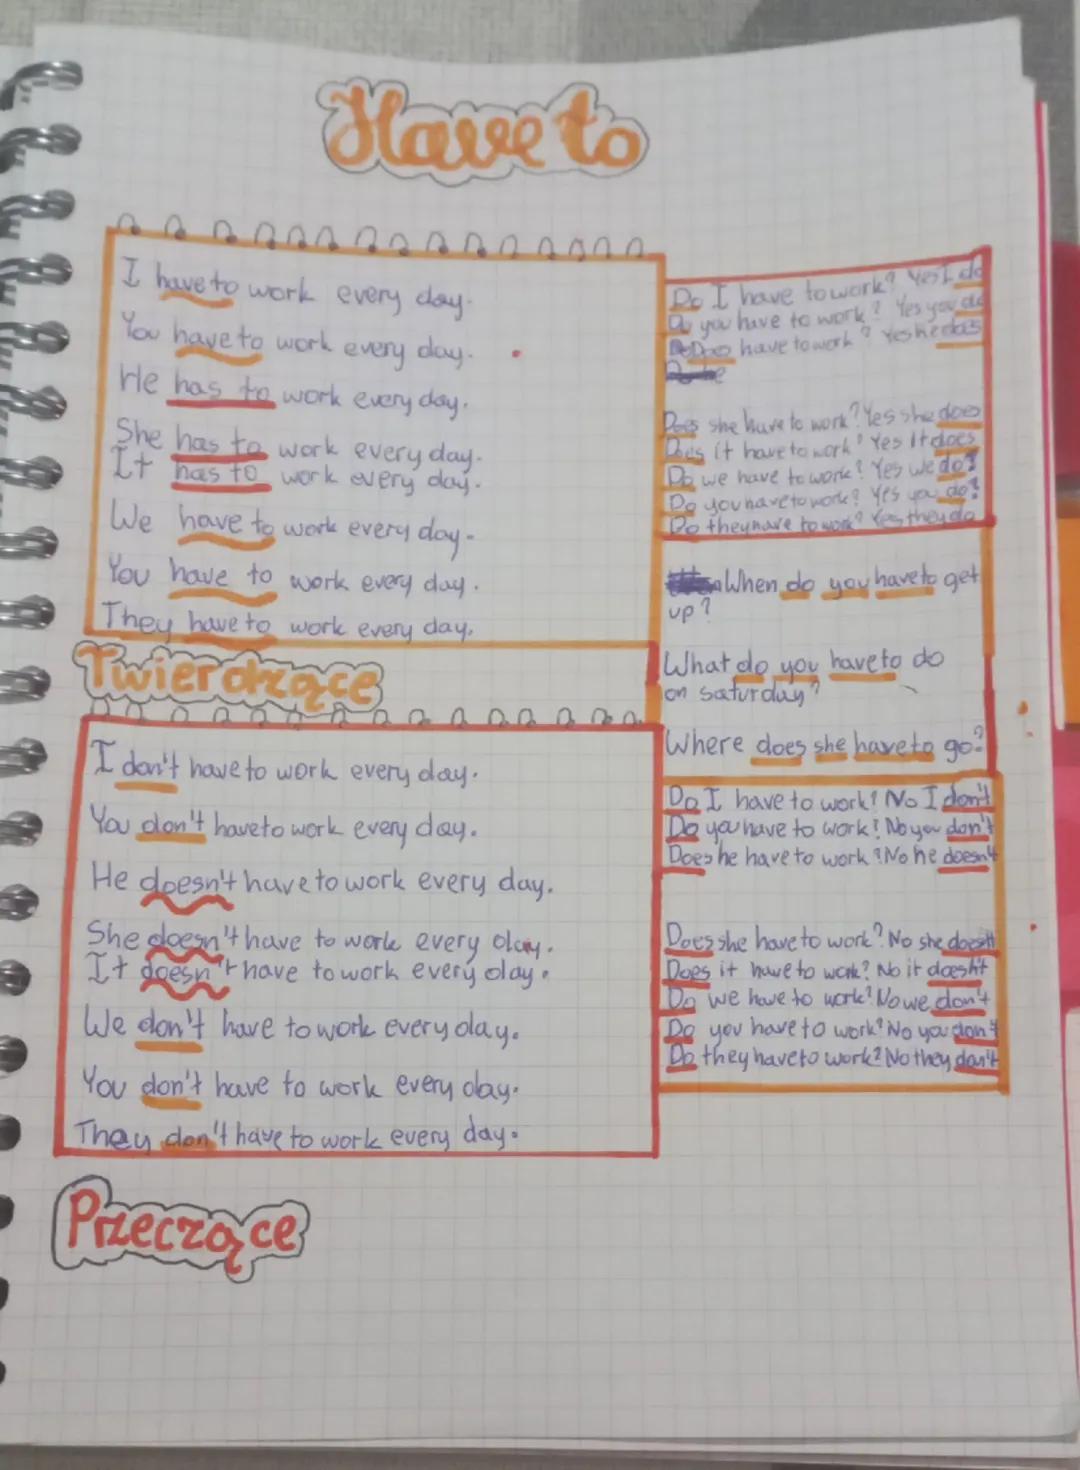 Have to
I have to work every day.
You have to work every day.
He has to work every day.
She has to work every day.
It has to work every day.
We have to work every day.
You have to work every day.
They have to work every day.
Twierdzące
I don't have to work every day.
You don't have to work every day.
He doesn't have to work every day.
She doesn't have to work every day.
It doesn't have to work every day.
We don't have to work every day.
You don't have to work every day.
They don't have to work every day.
Przeczące
Do I have to work? Yes I do
Do you have to work? Yes you do
Does have to work? Yes he does
Does she have to work? Yes she does
Does it have to work? Yes it does
Do we have to work? Yes we do?
Do you have to work? Yes you do?
Do they have to work? Yes they do
When do you have to get
up?
What do you have to do
on saturday?
Where does she have to go?
Do I have to work? No I don't
Do you have to work? No you don't
Does he have to work? No he doesn't
Does she have to work? No she doesn't
Does it have to work? No it doesn't
Do we have to work? No we don't
Do you have to work? No you don't
Do they have to work? No they don't